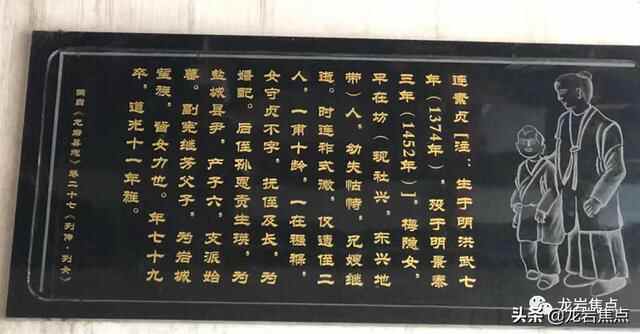 连素贞「注：生于明洪武七
年（1374年），殁于明景泰
三年（1452年）」，梅隐女，
早在坊（现社兴、东兴地
带）人，幼失怙恃，兄嫂继
逝。时连祚式微，仅遗侄二
人，一甫十龄，一在襁褓。
女守贞不字，抚侄及长，为
婚配。后侄孙恩贡生瑛，为
盐城县尹，产子六，支派始
蕃。副宪继芳父子，为岩城
望族，皆女力也。年七十九
卒。道光十一年旌。
摘自《龙岩县志》卷二十七《列传·列女》
龙岩焦点
头条 @龙岩焦点